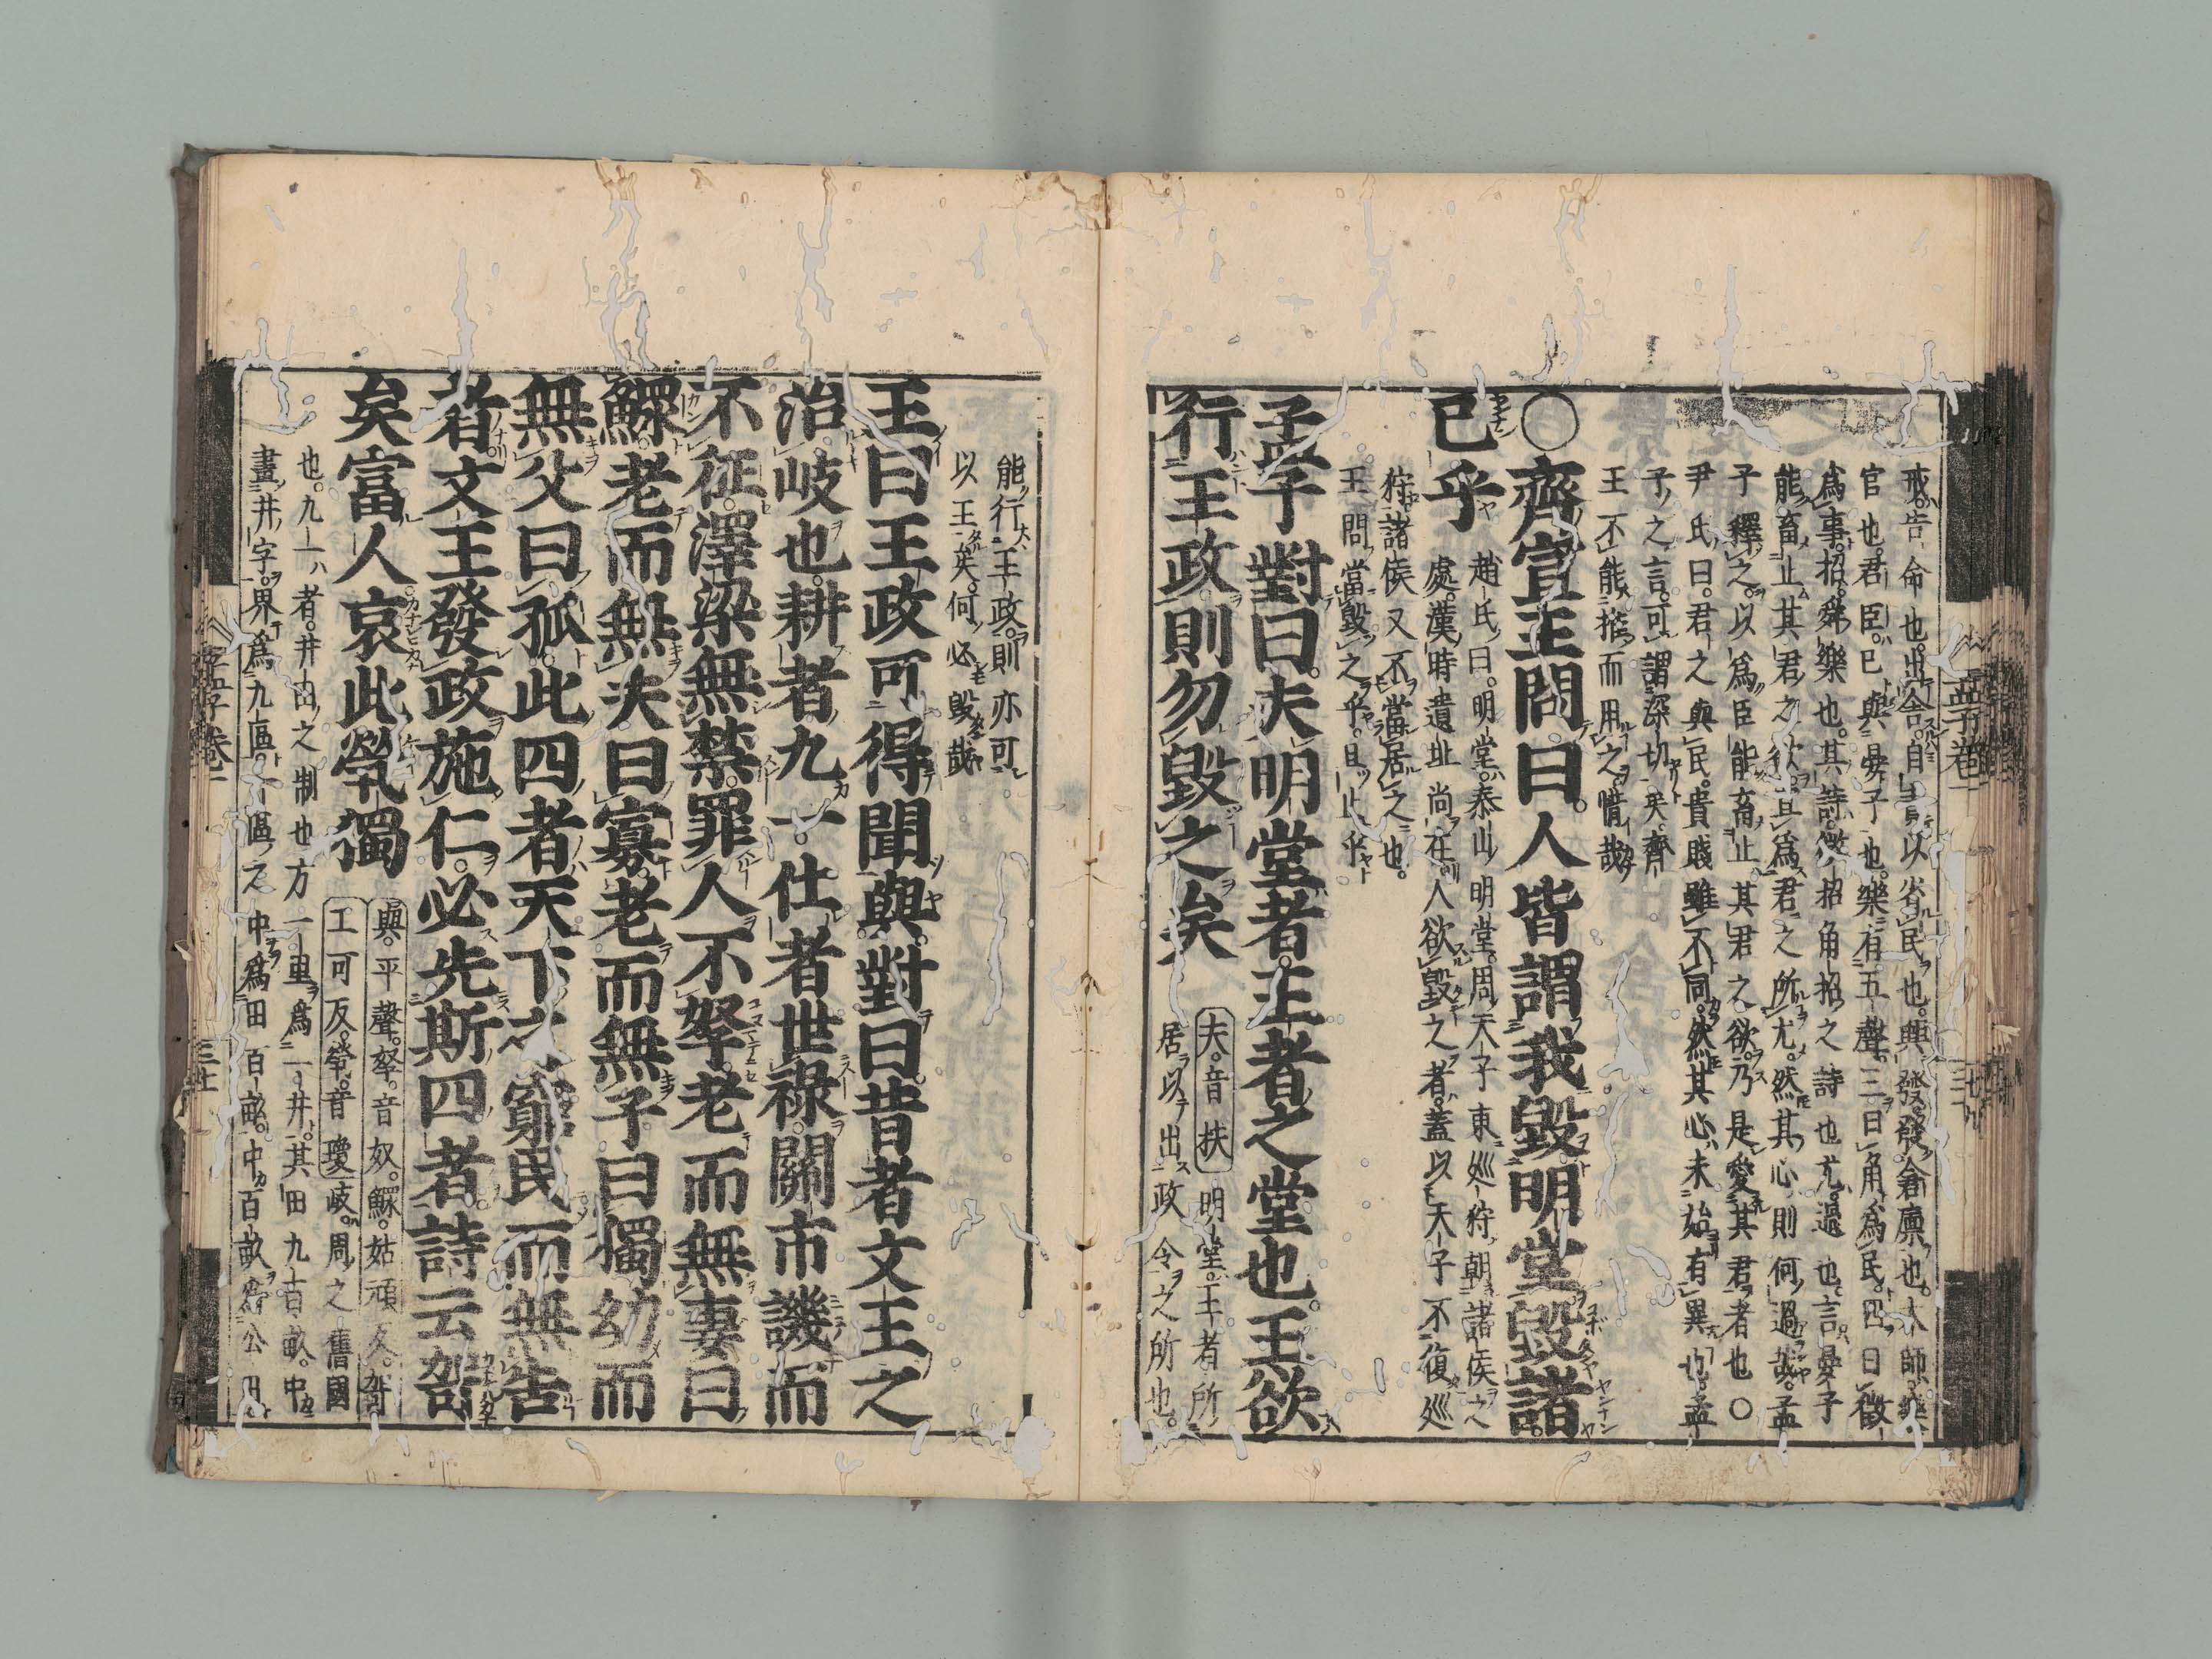 戒。告命也。出舍。自責以省民也。興發。發倉廩也。大師。樂
官也。君臣。已與晏子也。樂有五聲。三曰角爲民。四曰徵
爲事。招。舜樂也。其詩。徵招角招之詩也。尤。過也。言晏子
能畜止其君之欲。宜爲君之所尤。然其心則何過哉。孟
子釋之。以爲臣能畜止其君之欲。乃是愛其君者也○
尹氏曰。君之與民。貴賤雖不同。然其心未始有異也。孟
子之言。可謂深切矣。齊
王不能推而用之。惜哉
○齊宣王問曰。人皆謂我毀明堂毀諸。
已乎
趙氏曰。明堂。泰山明堂。周天子東巡狩朝諸侯之
處。漢時遺址尚在。人欲毀之者。蓋以天子不復巡
狩。諸侯又不當居之也。
王問。當毀之乎。且止乎
孟子對曰。夫明堂者。王者之堂也。王欲
行王政。則勿毀之矣
夫。音扶
明堂。王者所
居以出政令之所也。
能行王政。則亦可
以王矣。何必毀哉
王曰王政可得聞與。對曰。昔者文王之
治岐也。耕者九一。仕者世祿。關市譏而
不征。澤梁無禁。罪人不孥。老而無妻曰
鰥。老而無夫曰寡。老而無子曰獨。幼而
無父曰孤。此四者天下之窮民而無告
者。文王發政施仁。必先斯四者。詩云。哿
矣富人哀此煢獨
與。平聲。孥。音奴。鰥。姑頑反。哿
工可反。煢。音瓊
岐。周之舊國
也。九一者。井田之制也方一里爲一井。其田九百畝。中
畫井字。界爲九區。一區之中爲田百畝。中百畝爲公田
孟子卷一